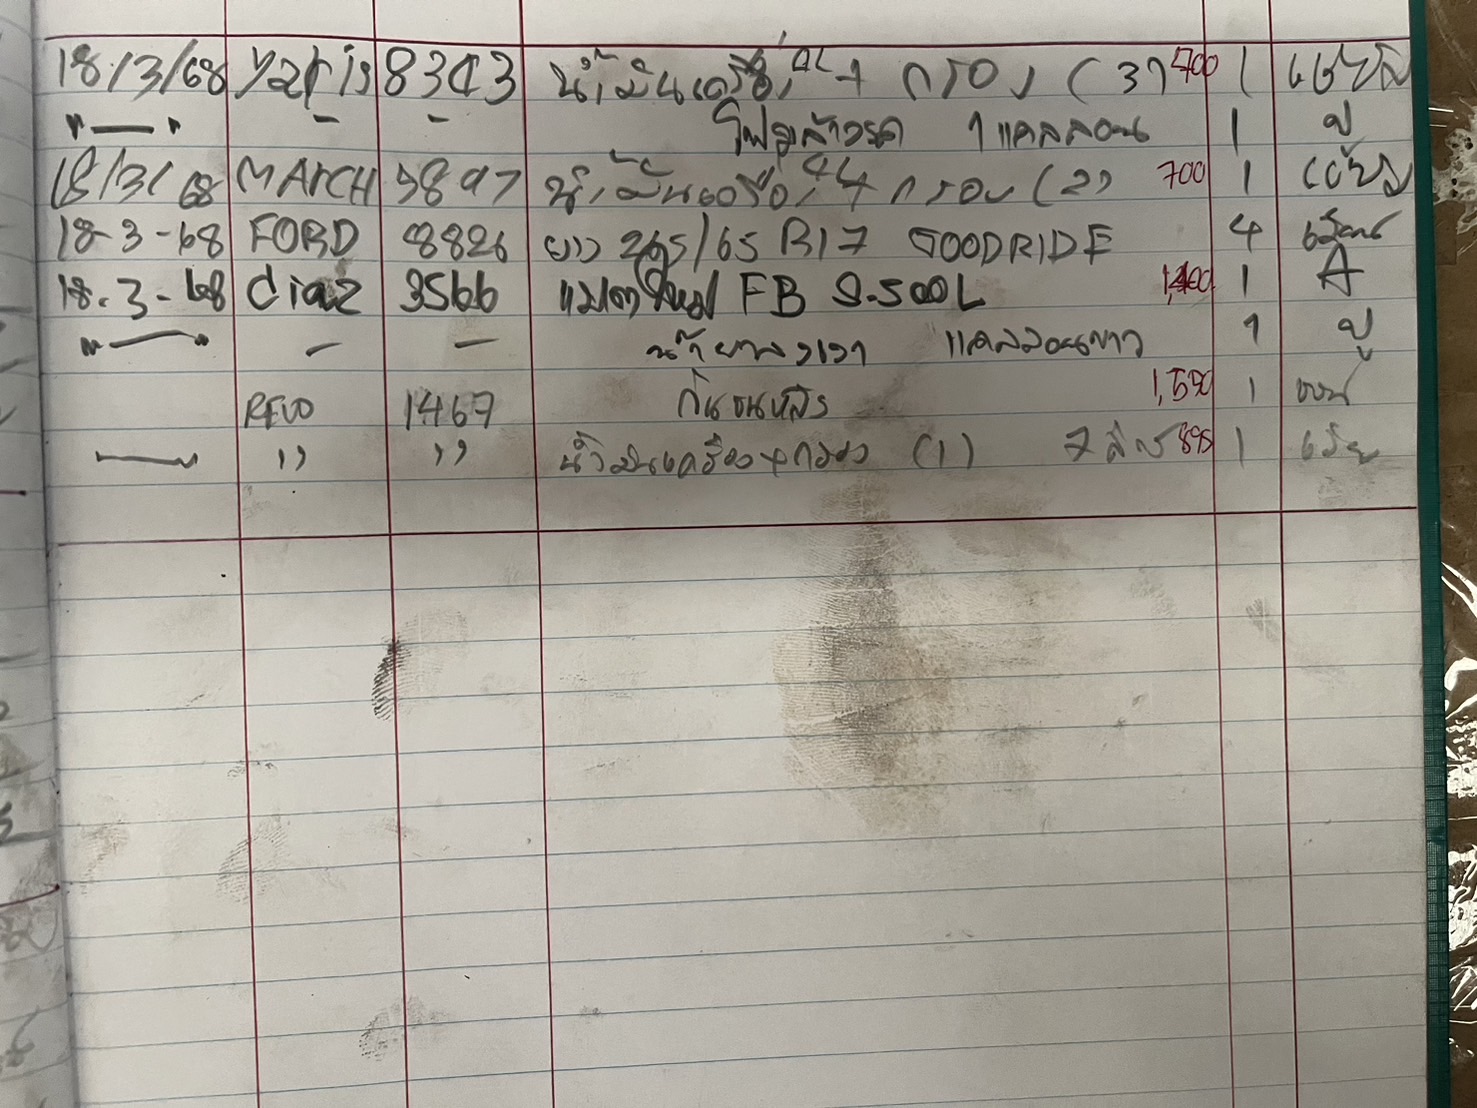 18/3/68 Yaris 8343 น้ำมันเครื่อง 4L + กรอง (3) 700 1
"—" - - โฟมล้างรถ 1 แกลลอน 1 ปู
18/3/68 MARCH 5897 น้ำมันเครื่อง 4L + กรอง (2) 700 1
18-3-68 FORD 8826 ยาง 265/65 R17 GOODRIDE 4
18.3-68 ciaz 3566 แบตใหม่ FB S.500L 1 A
"—" - - น้ำยายางเงา แกลลอนขาว 1 ปู
REVO 1467 กันชนหลัง 1,500 1
— " " น้ำมันเครื่อง + กรอง (1) 7 ลิตร 895 1